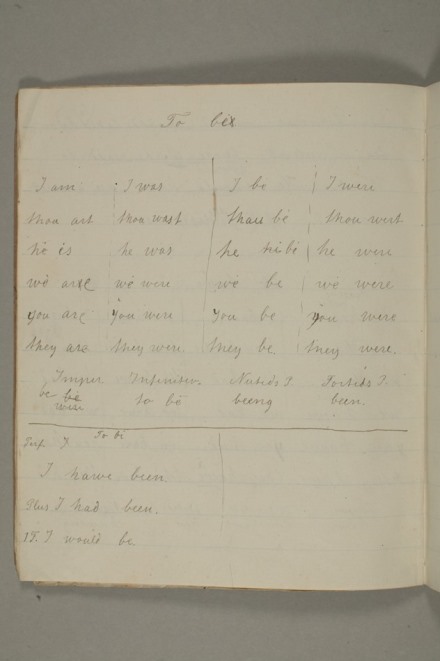 To be
I am I was I be I were
thou art thou wast thou be thou wert
he is he was he be he were
we are we were we be we were
you are you were you be you were
they are they were. they be they were.
Imper Infinitiv. Nutids P. Fortids P.
be to be being been.
To be
I have been
Plus I had been.
1F. I would be.